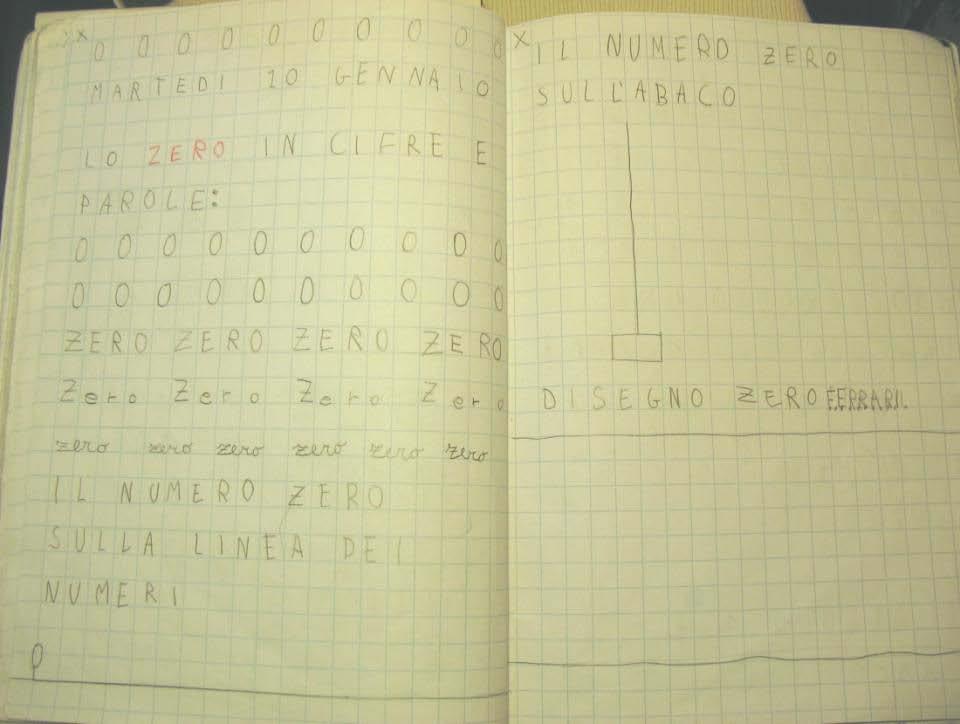 X 0 0 0 0 0 0 0 0 0 0
MARTEDI 20 GENNAIO
LO ZERO IN CIFRE E
PAROLE:
0 0 0 0 0 0 0 0 0 0
0 0 0 0 0 0 0 0 0 0
ZERO ZERO ZERO ZERO
Zero Zero Zero Zero
zero zero zero zero zero zero
IL NUMERO ZERO
SULLA LINEA DEI
NUMERI
0
X IL NUMERO ZERO
SULL'ABACO
DISEGNO ZERO FERRARI.